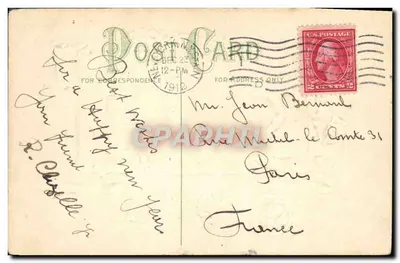 POST CARD
FOR CORRESPONDENCE
FOR ADDRESS ONLY
DEC 2
12-PM
1912
U.S. POSTAGE
Best wishes
for a happy new year
Your friend
Mr. Jean Bernard
Rue Michel-le-Comte 31
Paris
France
CPAPHIL